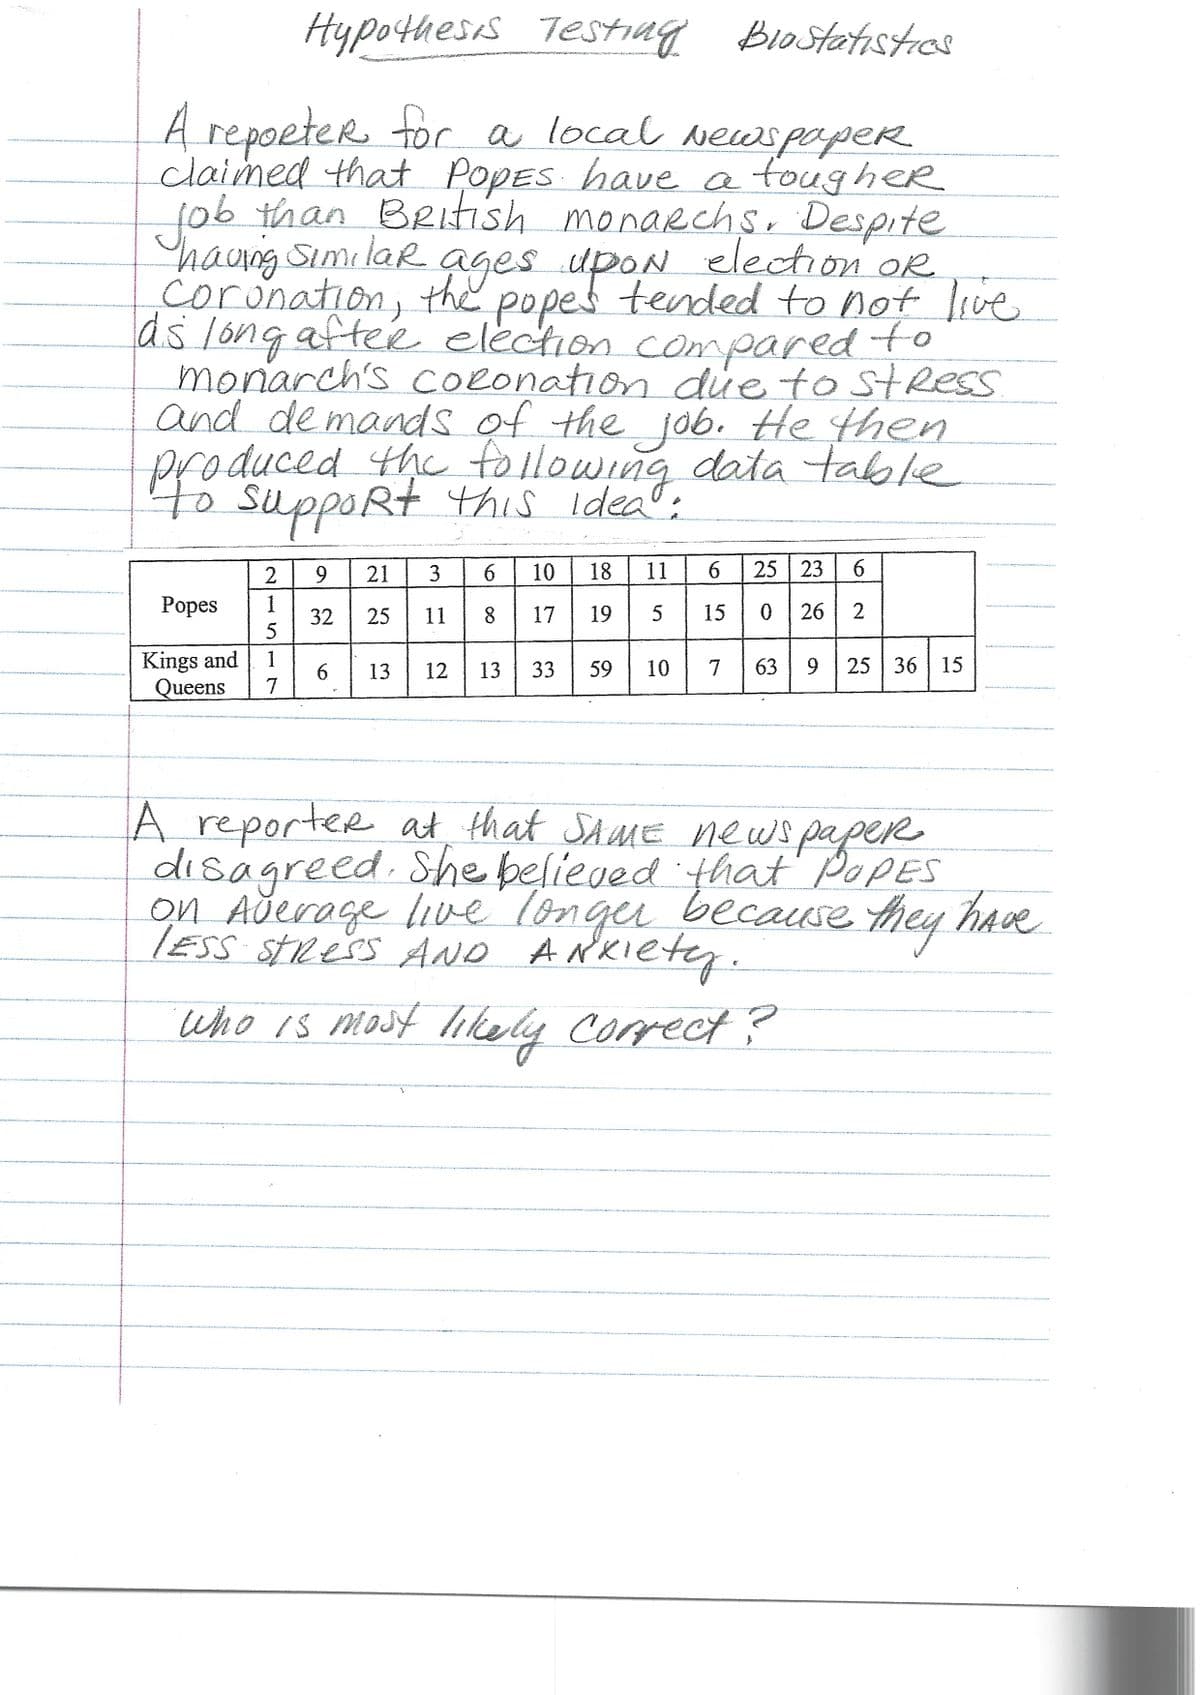 Hypothesis Testing Biostatistics
A reporter for a local newspaper
claimed that Popes have a tougher
job than British monarchs. Despite
having similar ages upon election or
coronation, the popes tended to not live
as long after election compared to
monarch's coronation due to stress
and demands of the job. He then
produced the following data table
to support this idea:
Popes 2 9 21 3 6 10 18 11 6 25 23 6
15 32 25 11 8 17 19 5 15 0 26 2
Kings and Queens 17 6 13 12 13 33 59 10 7 63 9 25 36 15
A reporter at that SAME newspaper
disagreed. She believed that Popes
on Average live longer because they have
less stress AND Anxiety.
Who is most likely correct?